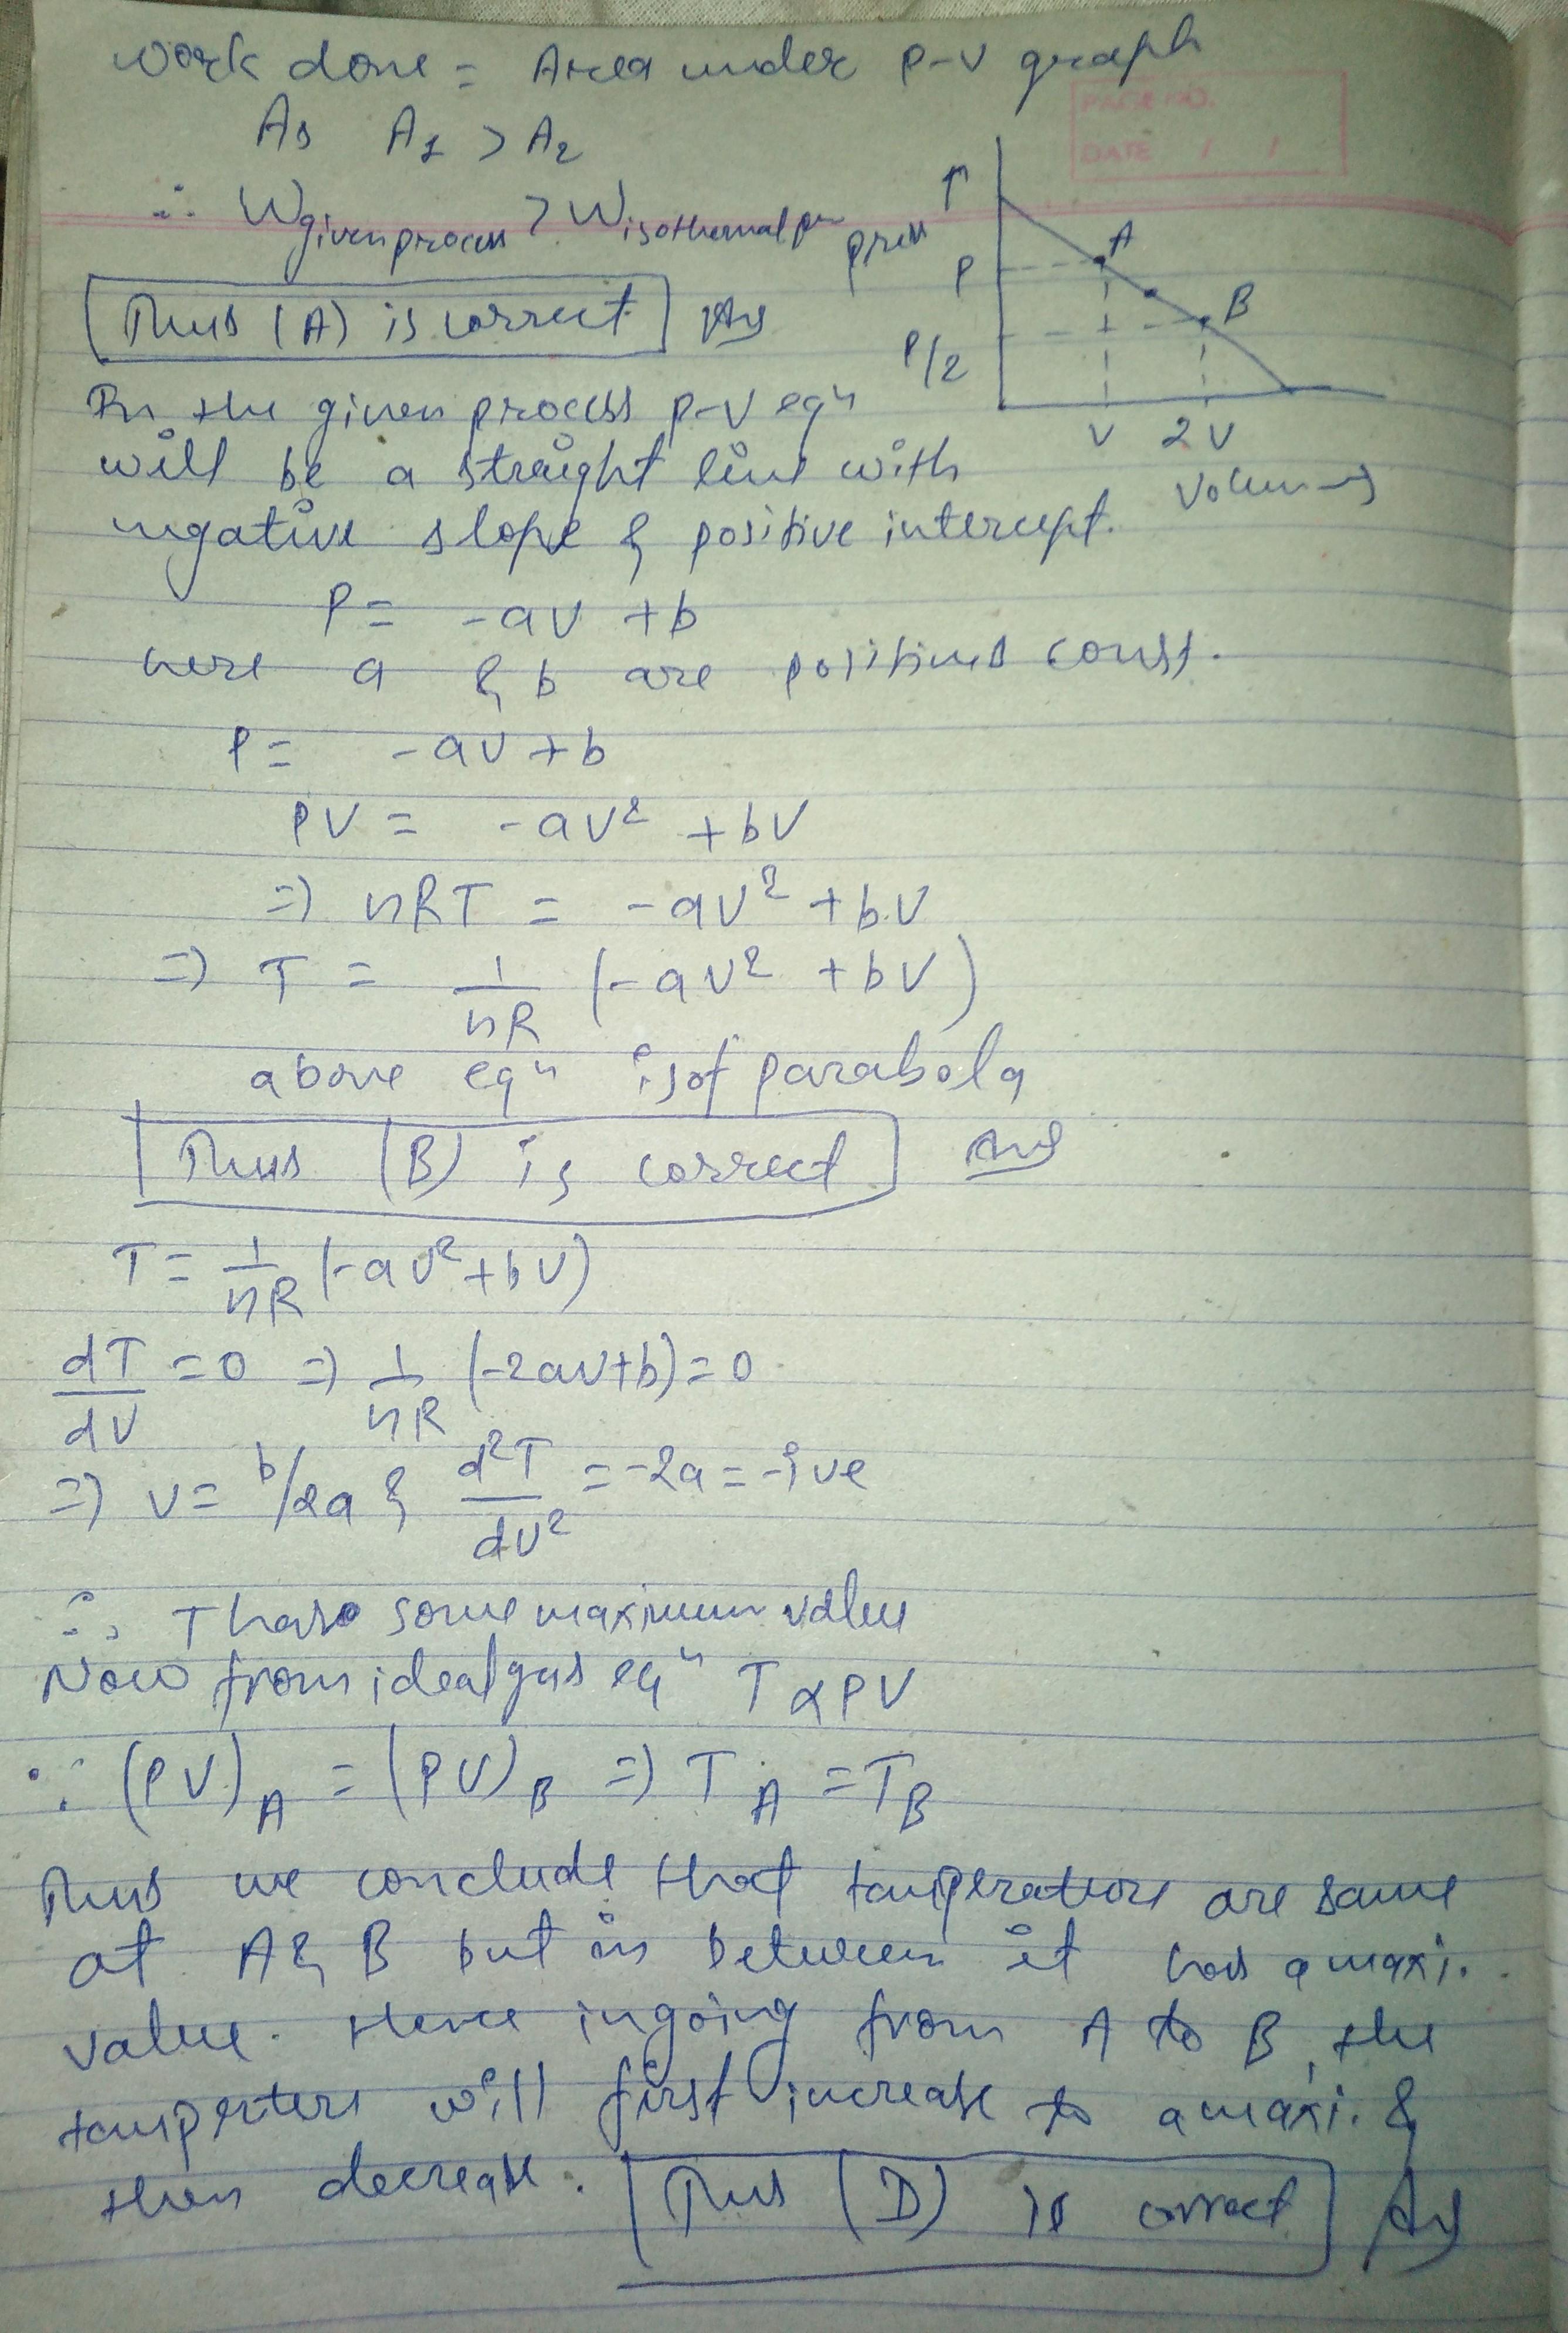 work done = Area under P-V graph
PAGE NO.
DATE / /
As A1 > A2
∴ Wgiven process > Wisothermal
↑
press
P
P/2
A
B
V 2V
Volum →
[Thus (A) is correct] Ans
In the given process p-v eqn
will be a straight line with
negative slope & positive intercept.
P = -av + b
here a & b are const.
P = -av + b
PV = -av² + bV
=) nRT = -av² + bV
=) T = 1/nR (-av² + bV)
above eqn is of parabola
[Thus (B) is correct] Ans
T = 1/nR (-av² + bV)
dT/dV = 0 =) 1/nR (-2av + b) = 0
=) v = b/2a & d²T/dv² = -2a = -ive
∴ T has some maximum value
Now from ideal gas eqn T α PV
∵ (PV)A = (PV)B =) TA = TB
Thus we conclude that are same
at A & B but in between it has a maxi.
value. Hence in going from A to B, the
will first increase to a maxi. &
then decrease. [Thus (D) is correct] Ans